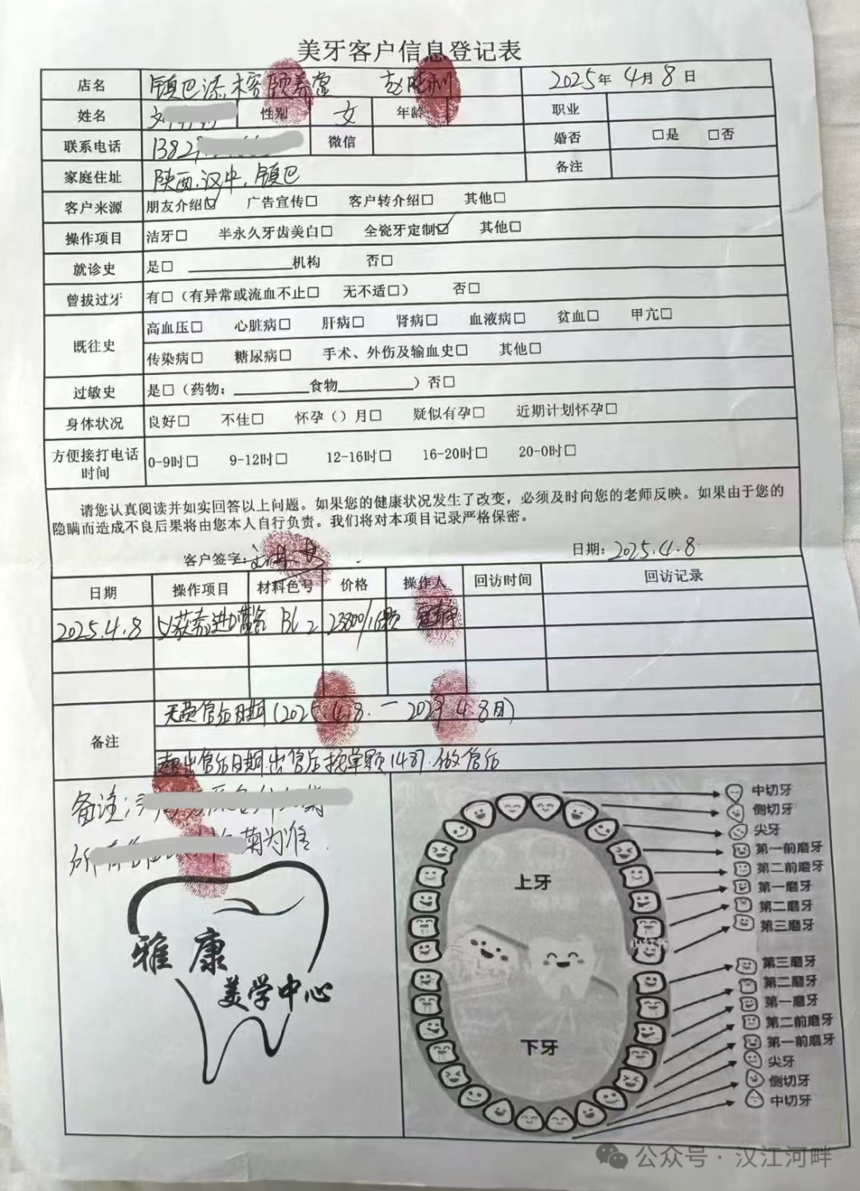 美牙客户信息登记表
店名 镇巴 2025年 4月 8日
姓名 性别 女 年龄 职业
联系电话 微信 婚否 □是 □否
家庭住址 陕西.汉中.镇巴 备注
客户来源 朋友介绍☑ 广告宣传□ 客户转介绍□ 其他□
操作项目 洁牙□ 半永久牙齿美白□ 全瓷牙定制☑ 其他□
就诊史 是□ ____________机构 否□
曾拔过牙 有□（有异常或流血不止□ 无不适□） 否□
既往史 高血压□ 心脏病□ 肝病□ 肾病□ 血液病□ 贫血□ 甲亢□
传染病□ 糖尿病□ 手术、外伤及输血史□ 其他□
过敏史 是□（药物：_________食物_________）否□
身体状况 良好□ 不佳□ 怀孕（）月□ 疑似有孕□ 近期计划怀孕□
方便接打电话时间 0-9时□ 9-12时□ 12-16时□ 16-20时□ 20-0时□
请您认真阅读并如实回答以上问题。如果您的健康状况发生了改变，必须及时向您的老师反映。如果由于您的
隐瞒而造成不良后果将由您本人自行负责。我们将对本项目记录严格保密。
客户签字： 日期：2025.4.8
日期 操作项目 材料色号 价格 操作人 回访时间 回访记录
2025.4.8 BL2 23800/16颗
备注 免费售后日期(2025.4.8.一2029.4.8日)
超出售后日期出售后按单颗147.做售后
备注：
为准.
雅康
美学中心
上牙
下牙
中切牙
侧切牙
尖牙
第一前磨牙
第二前磨牙
第一磨牙
第二磨牙
第三磨牙
第三磨牙
第二磨牙
第一磨牙
第二前磨牙
第一前磨牙
尖牙
侧切牙
中切牙
公众号·汉江河畔